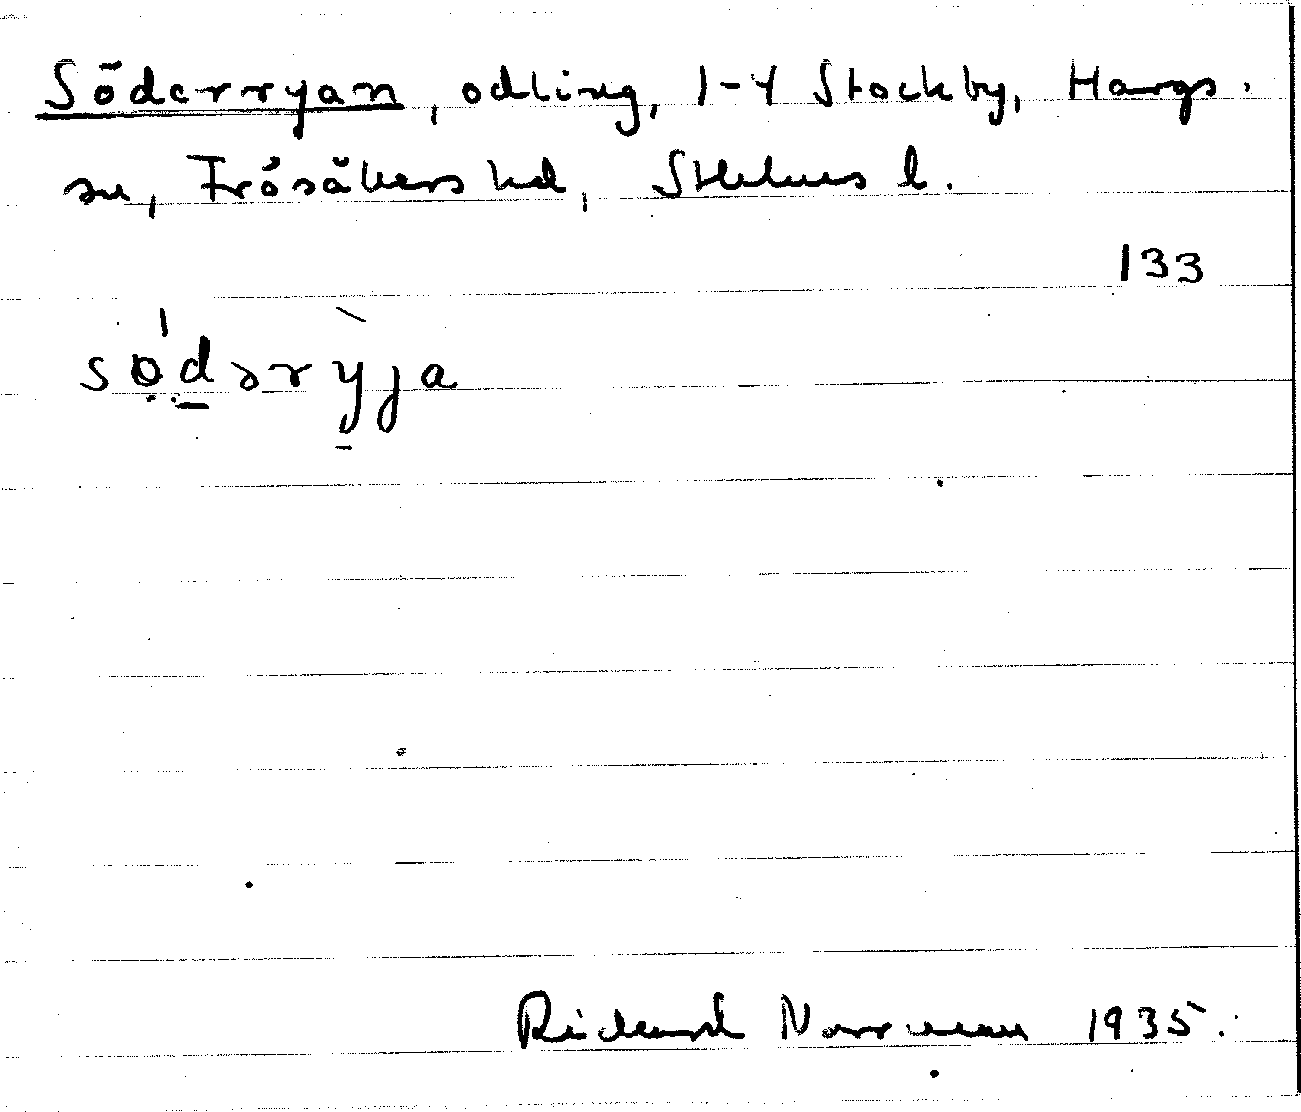 Söderryan, odling, 1-4 Stockby, Hargs
sn, Frösåkers hd, Sthlms l.
133
södərýja
Rickard Norrman 1935.